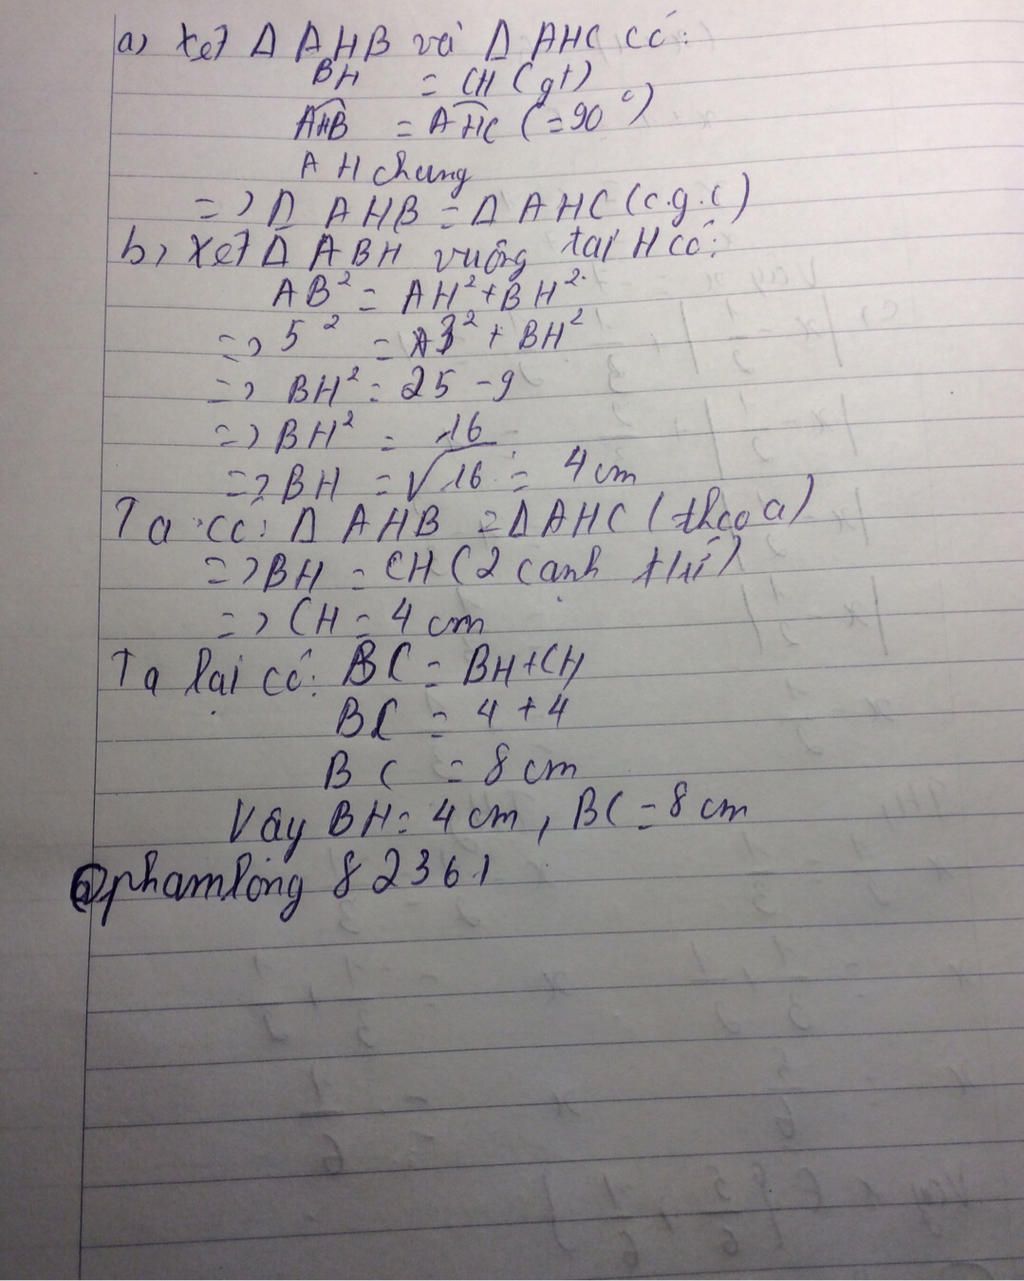 a) Xét Δ AHB và Δ AHC có:
BH = CH (gt)
AHB = AHC (=90°)
AH chung
=> Δ AHB = Δ AHC (c.g.c)
b) Xét Δ ABH vuông tại H có:
AB² = AH² + BH²
=> 5² = 3² + BH²
=> BH² = 25 - 9
=> BH² = 16
=> BH = √16 = 4 cm
Ta có: Δ AHB = Δ AHC (theo a)
=> BH = CH (2 cạnh
=> CH = 4 cm
Ta lại có: BC = BH + CH
BC = 4 + 4
BC = 8 cm
Vây BH = 4 cm, BC = 8 cm
phamlong 82361